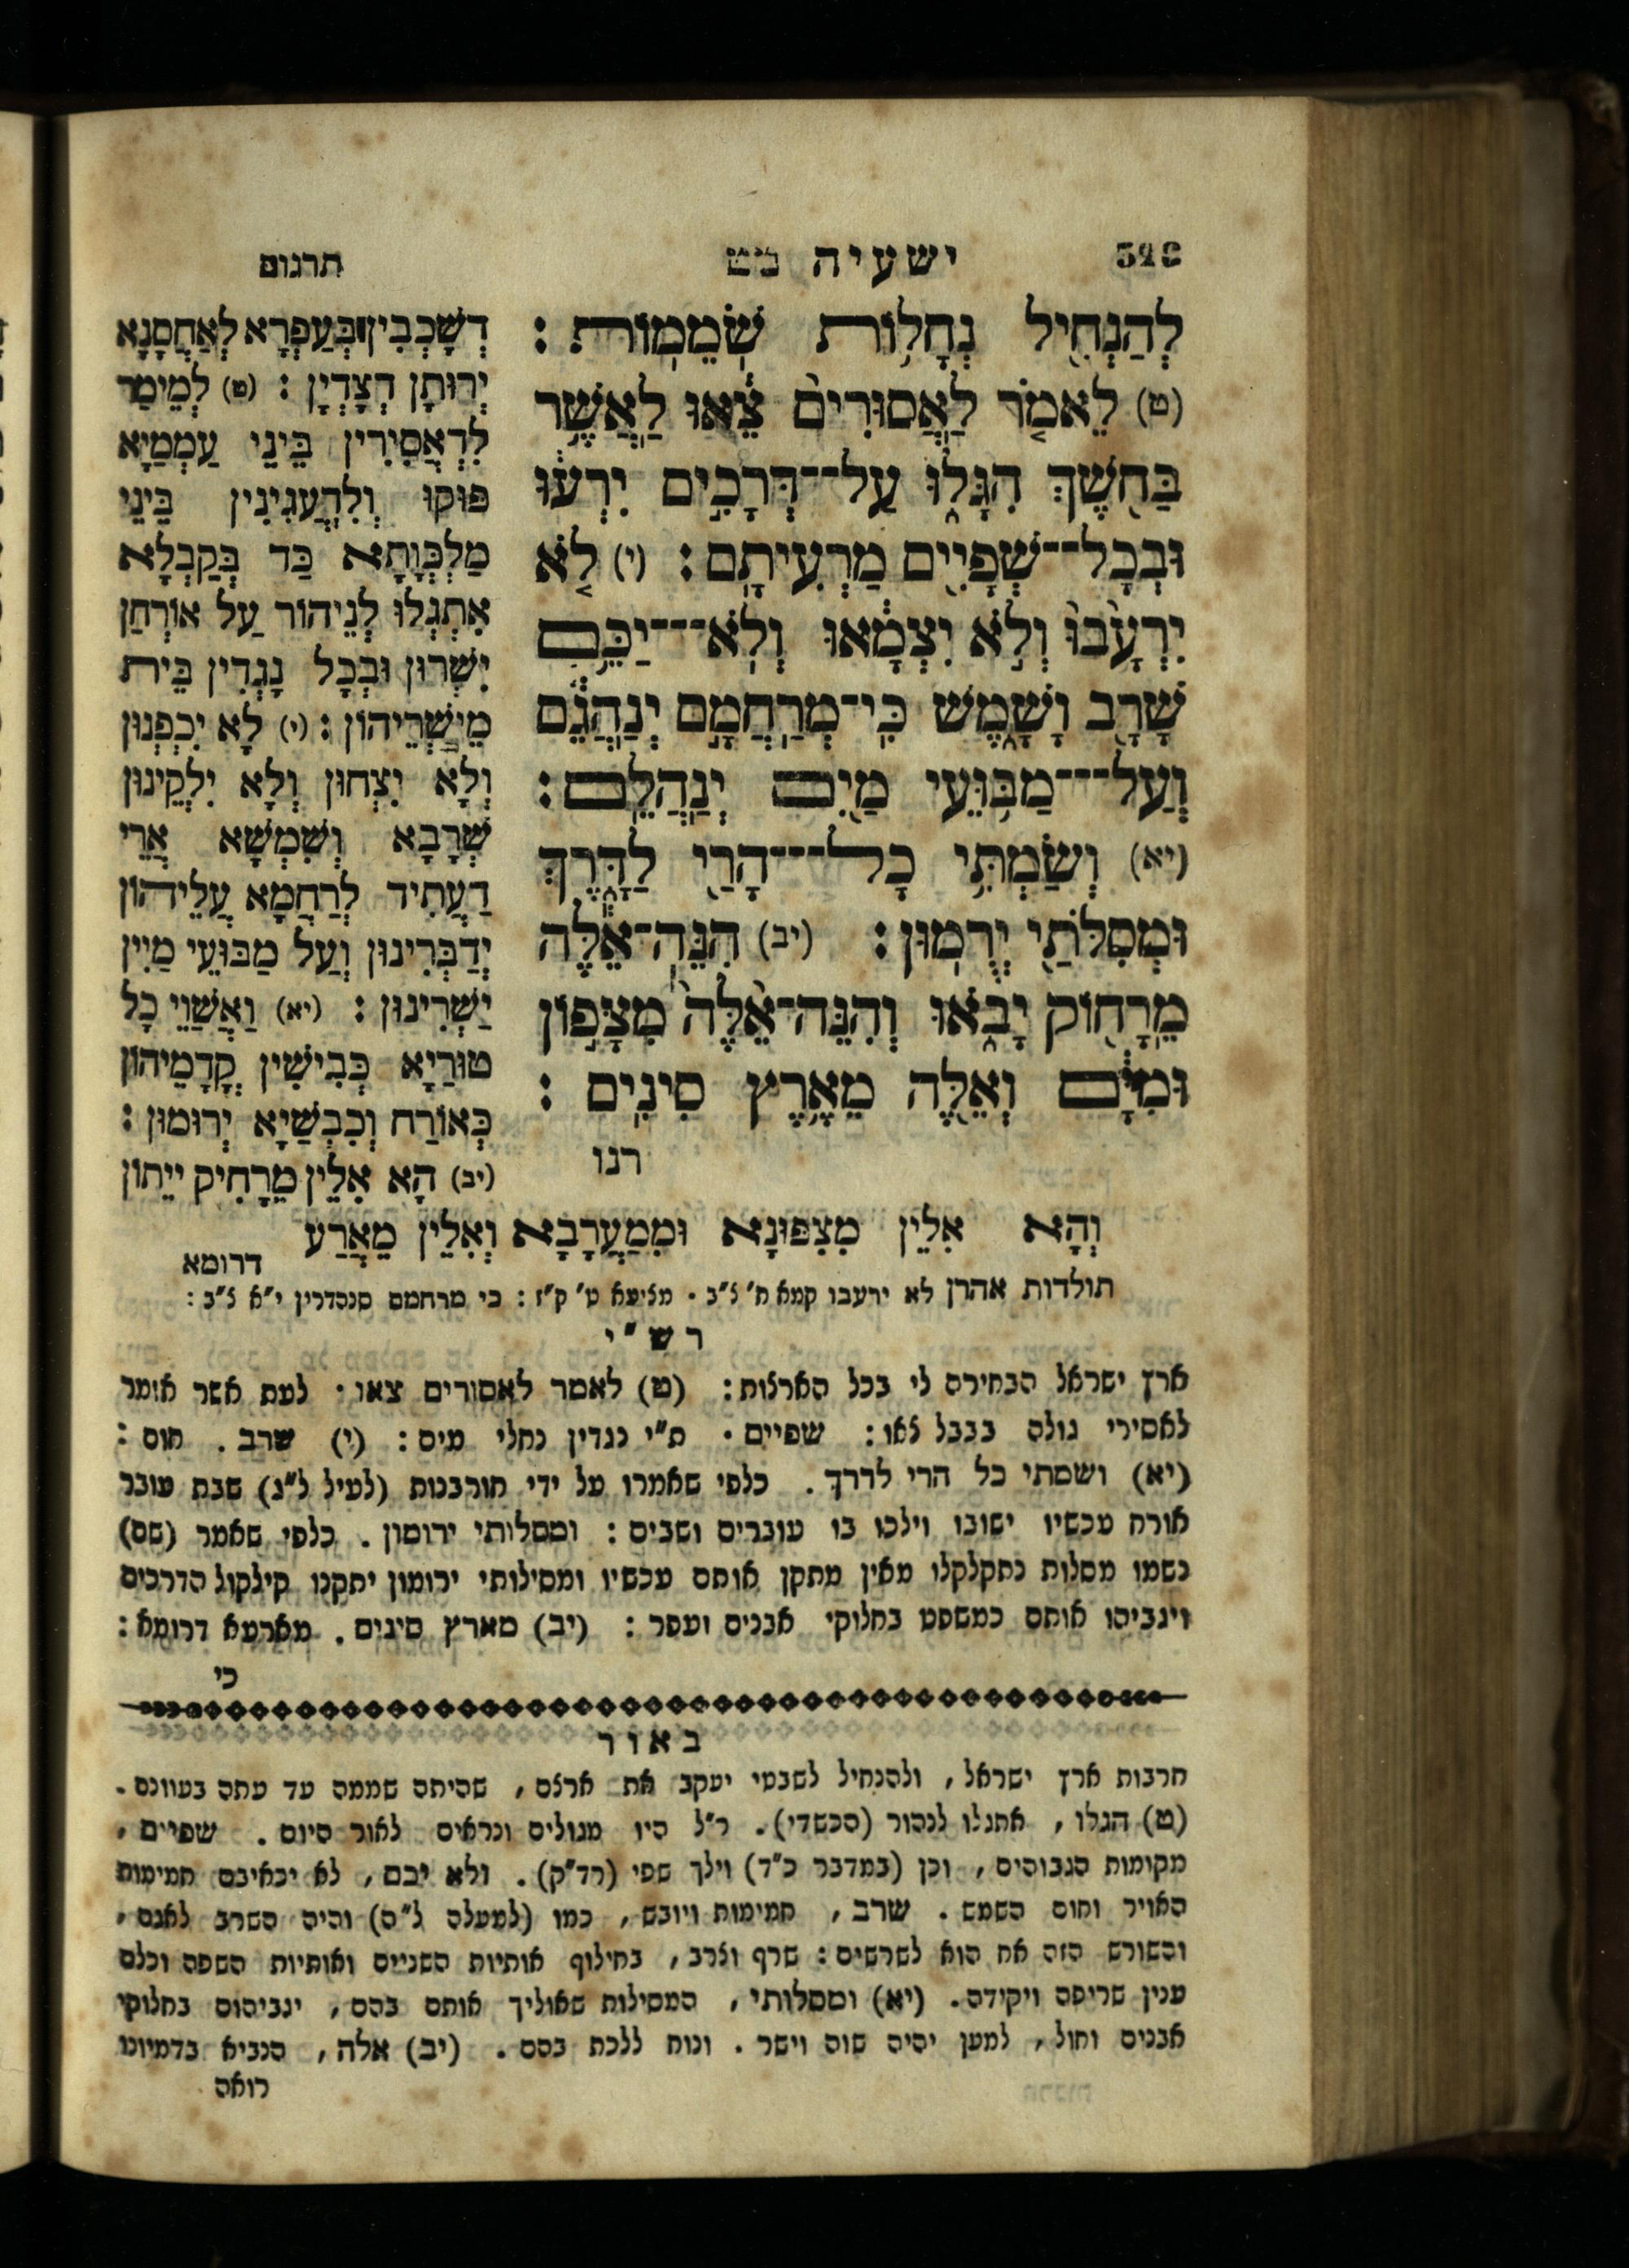 528
ישעיה מט
תרגום
לְהַנְחִ֖יל נְחָל֥וֹת שֹֽׁמֵמֽוֹת׃
(ט) לֵאמֹ֤ר לַֽאֲסוּרִים֙ צֵ֔אוּ לַֽאֲשֶׁ֥ר
בַּחֹ֖שֶׁךְ הִגָּל֑וּ עַל־דְּרָכִ֣ים יִרְע֔וּ
וּבְכָל־שְׁפָיִ֖ים מַרְעִיתָֽם׃ (י) לֹ֤א
יִרְעָ֙בוּ֙ וְלֹ֣א יִצְמָ֔אוּ וְלֹֽא־יַכֵּ֥ם
שָׁרָ֖ב וָשָׁ֑מֶשׁ כִּֽי־מְרַֽחֲמָ֣ם יְנַֽהֲגֵ֔ם
וְעַל־מַבּ֥וּעֵי מַ֖יִם יְנַֽהֲלֵֽם׃
(יא) וְשַׂמְתִּ֥י כָל־הָרַ֖י לַדָּ֑רֶךְ
וּמְסִלֹּתַ֖י יְרֻמֽוּן׃ (יב) הִנֵּה־אֵ֕לֶּה
מֵֽרָח֖וֹק יָבֹ֑אוּ וְהִנֵּה־אֵ֙לֶּה֙ מִצָּפ֣וֹן
וּמִיָּ֔ם וְאֵ֖לֶּה מֵאֶ֥רֶץ סִינִֽים׃
רנו
דְשָׁכְבִין בְּעַפְרָא לְאַחֲסָנָא
יְרוּתָן דְצָדְיָן׃ (ט) לְמֵימַר
לִדְאֲסִירִין בֵּינֵי עַמְמַיָא
פּוּקוּ וְלִדַעֲנִינִין בֵּינֵי
מַלְכְּוָתָא כַּד בְּקַבְלָא
אִתְגְלוּ לְנֵיהוֹר עַל אוֹרְחַן
יִשְׁרוּן וּבְכָל נָגְדִין בֵּית
מֵישְׁרֵיהוֹן׃ (י) לָא יִכְפְנוּן
וְלָא יִצְחוּן וְלָא יִלְקֵינוּן
שְׁרָבָא וְשִׁמְשָׁא אֲרֵי
דַעֲתִיד לְרַחֲמָא עֲלֵיהוֹן
יְדַבְּרִינוּן וְעַל מַבּוּעֵי מַיִין
יַשְׁרִינוּן׃ (יא) וַאֲשַׁוֵי כָל
טוּרַיָא כְּבִישִׁין קֳדָמֵיהוֹן
כְּאוֹרַח וְכִבְשַׁיָא יְרוּמוּן׃
(יב) הָא אִלֵין מֵרָחִיק יֵיתוֹן
וְהָא אִלֵין מִצִפּוּנָא וּמִמַעֲרָבָא וְאִלֵין מֵאֲרַע
דרומא
תולדות אהרן לא ירעבו קמא ח׳ צ״ב · מציעא ט׳ ק״ז : כי מרחמם סנהדרין י״א צ״ב :
רש״י
ארץ ישראל הבחירה לי בכל הארצות: (ט) לאמר לאסורים צאו · לעת אשר אומר
לאסירי גולה בבבל צאו: שפיים · ת״י נגדין נחלי מים: (י) שרב . חום :
(יא) ושמתי כל הרי לדרך . כלפי שאמרו על ידי חורבנות (לעיל ל״ג) שבת עובר
אורח עכשיו ישובו וילכו בו עוברים ושבים : ומסלותי ירומון . כלפי שאמר (שם)
נשמו מסלות נתקלקלו מאין מתקן אותם עכשיו ומסילותי ירומון יתקנו קילקול הדרכים
ויגביהו אותם כמשפט בחלוקי אבנים ועפר : (יב) מארץ סינים . מארעא דרומא :
כי
באור
חרבות ארץ ישראל, ולהנחיל לשבטי יעקב את ארצם, שהיתה שממה עד עתה בעוונם.
(ט) הגלו, אתגלו לנהור (הכשדי). ר״ל היו מגולים ונראים לאור היום . שפיים,
מקומות הגבוהים, וכן (במדבר כ״ד) וילך שפי (רד״ק). ולא יכם, לא יכאיבם חמימות
האויר וחום השמש . שרב, חמימות ויובש, כמו (למעלה ל״ה) והיה השרב לאגם,
והשורש הזה אח הוא לשרשים: שרף וצרב, בחילוף אותיות השניים ואותיות השפה וכלם
ענין שריפה ויקידה. (יא) ומסלותי, המסילות שאוליך אותם בהם, יגביהום בחלוקי
אבנים וחול, למען יהיה שוה וישר . ונוח ללכת בהם . (יב) אלה, הנביא בדמיונו
רואה